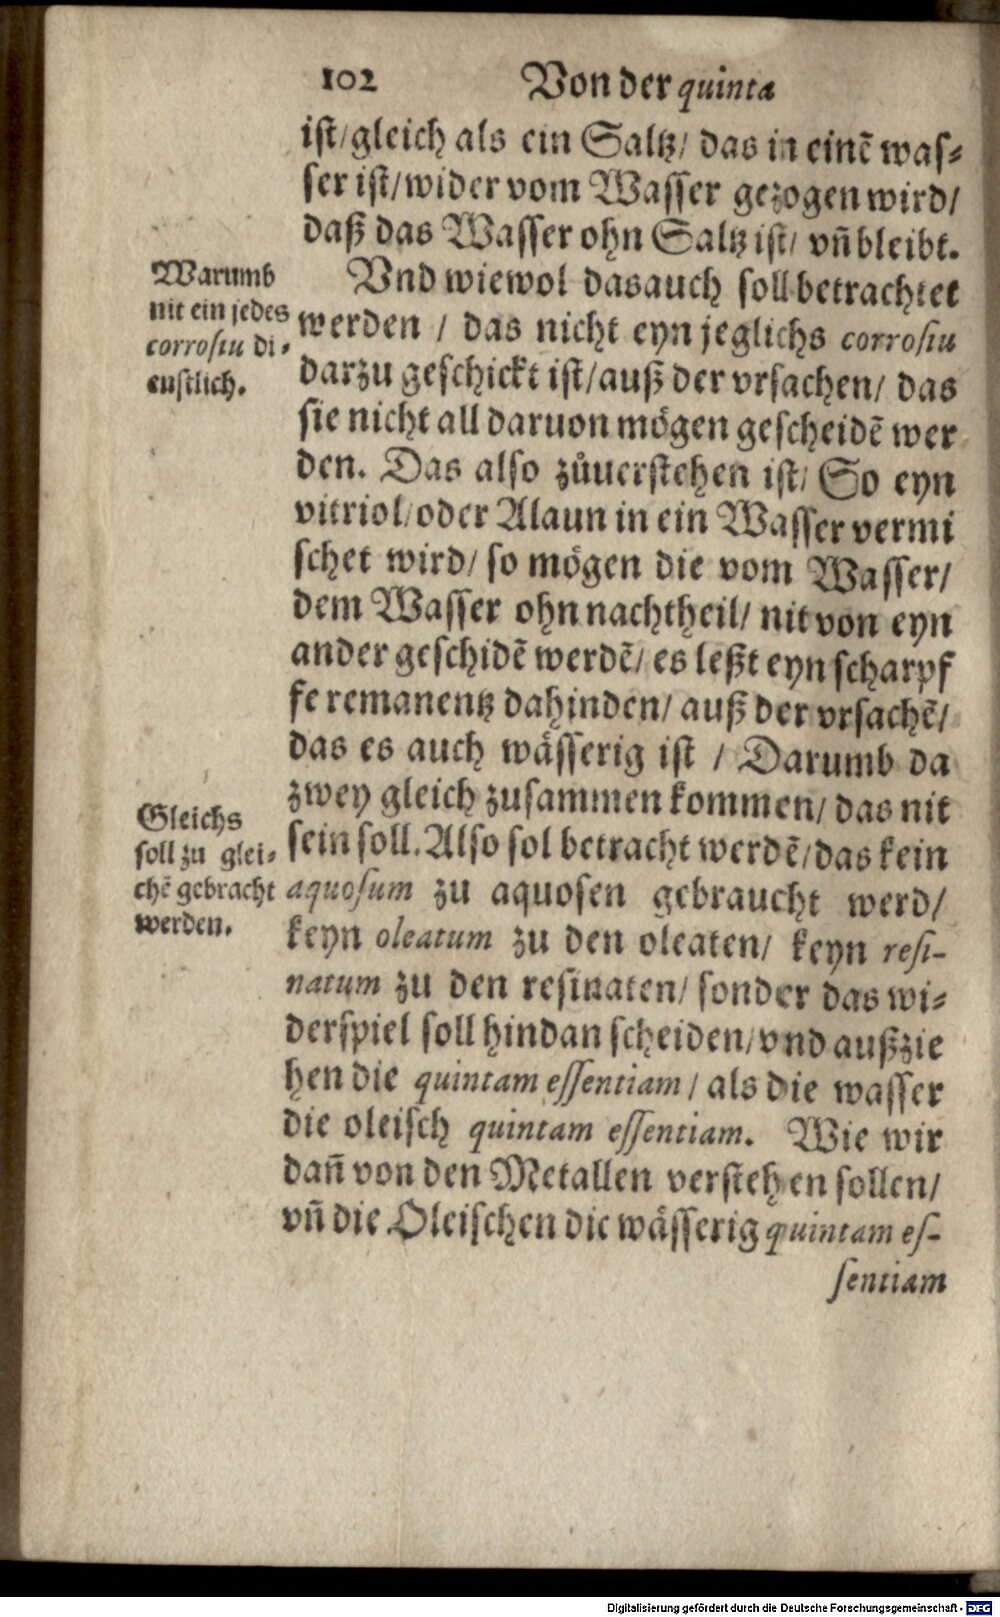 102 Von der quinta
ist/gleich als ein Saltz/ das in einẽ was-
ser ist/wider vom Wasser gezogen wird/
daß das Wasser ohn Saltz ist/ vñ bleibt.
Vnd wiewol das auch soll betrachtet
werden / das nicht eyn jeglichs corrosiu
darzu geschickt ist/auß der vrsachen/ das
sie nicht all daruon mögen gescheidẽ wer
den. Das also zůuerstehen ist/ So eyn
vitriol/oder Alaun in ein Wasser vermi
schet wird/ so mögen die vom Wasser/
dem Wasser ohn nachtheil/ nit von eyn
ander geschidẽ werdẽ/ es leßt eyn scharpf
fe remanentz dahinden/ auß der vrsachẽ/
das es auch wässerig ist / Darumb da
zwey gleich zusammen kommen/ das nit
sein soll. Also sol betracht werdẽ/das kein
aquosum zu aquosen gebraucht werd/
keyn oleatum zu den oleaten/ keyn resi-
natum zu den resinaten/ sonder das wi-
derspiel soll hindan scheiden/vnd außzie
hen die quintam essentiam/ als die wasser
die oleisch quintam essentiam. Wie wir
dañ von den Metallen verstehen sollen/
vñ die Oleischen die wässerig quintam es-
sentiam
Warumb
nit ein jedes
corrosiu di-
enstlich.
Gleichs
soll zu glei-
chẽ gebracht
werden.
Digitalisierung gefördert durch die Deutsche Forschungsgemeinschaft - DFG